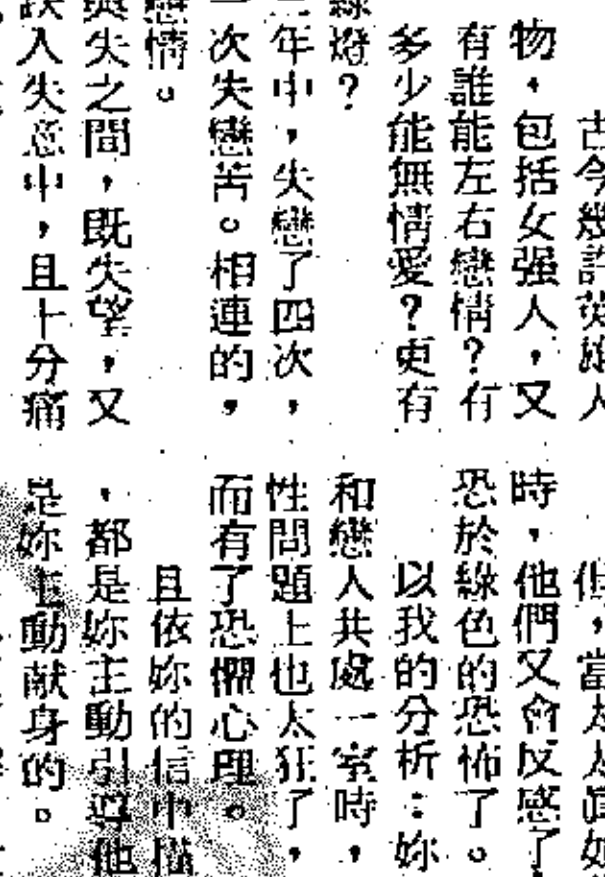 古今幾許英雄人
物，包括女强人，又
有誰能左右戀情？有
多少能無情愛？更有
綠燈？
年中，失戀了四次，
一次失戀苦。相連的，
戀情。
與失之間，既失望，又
跌入失意中，且十分痛
但，當太太眞如
時，他們又會反感了
恐於綠色的恐怖了。
以我的分析：妳
和戀人共處一室時，
性問題上也太狂了，
而有了恐懼心理。
且依妳的信中描
，都是妳主動引導他
是妳主動献身的。